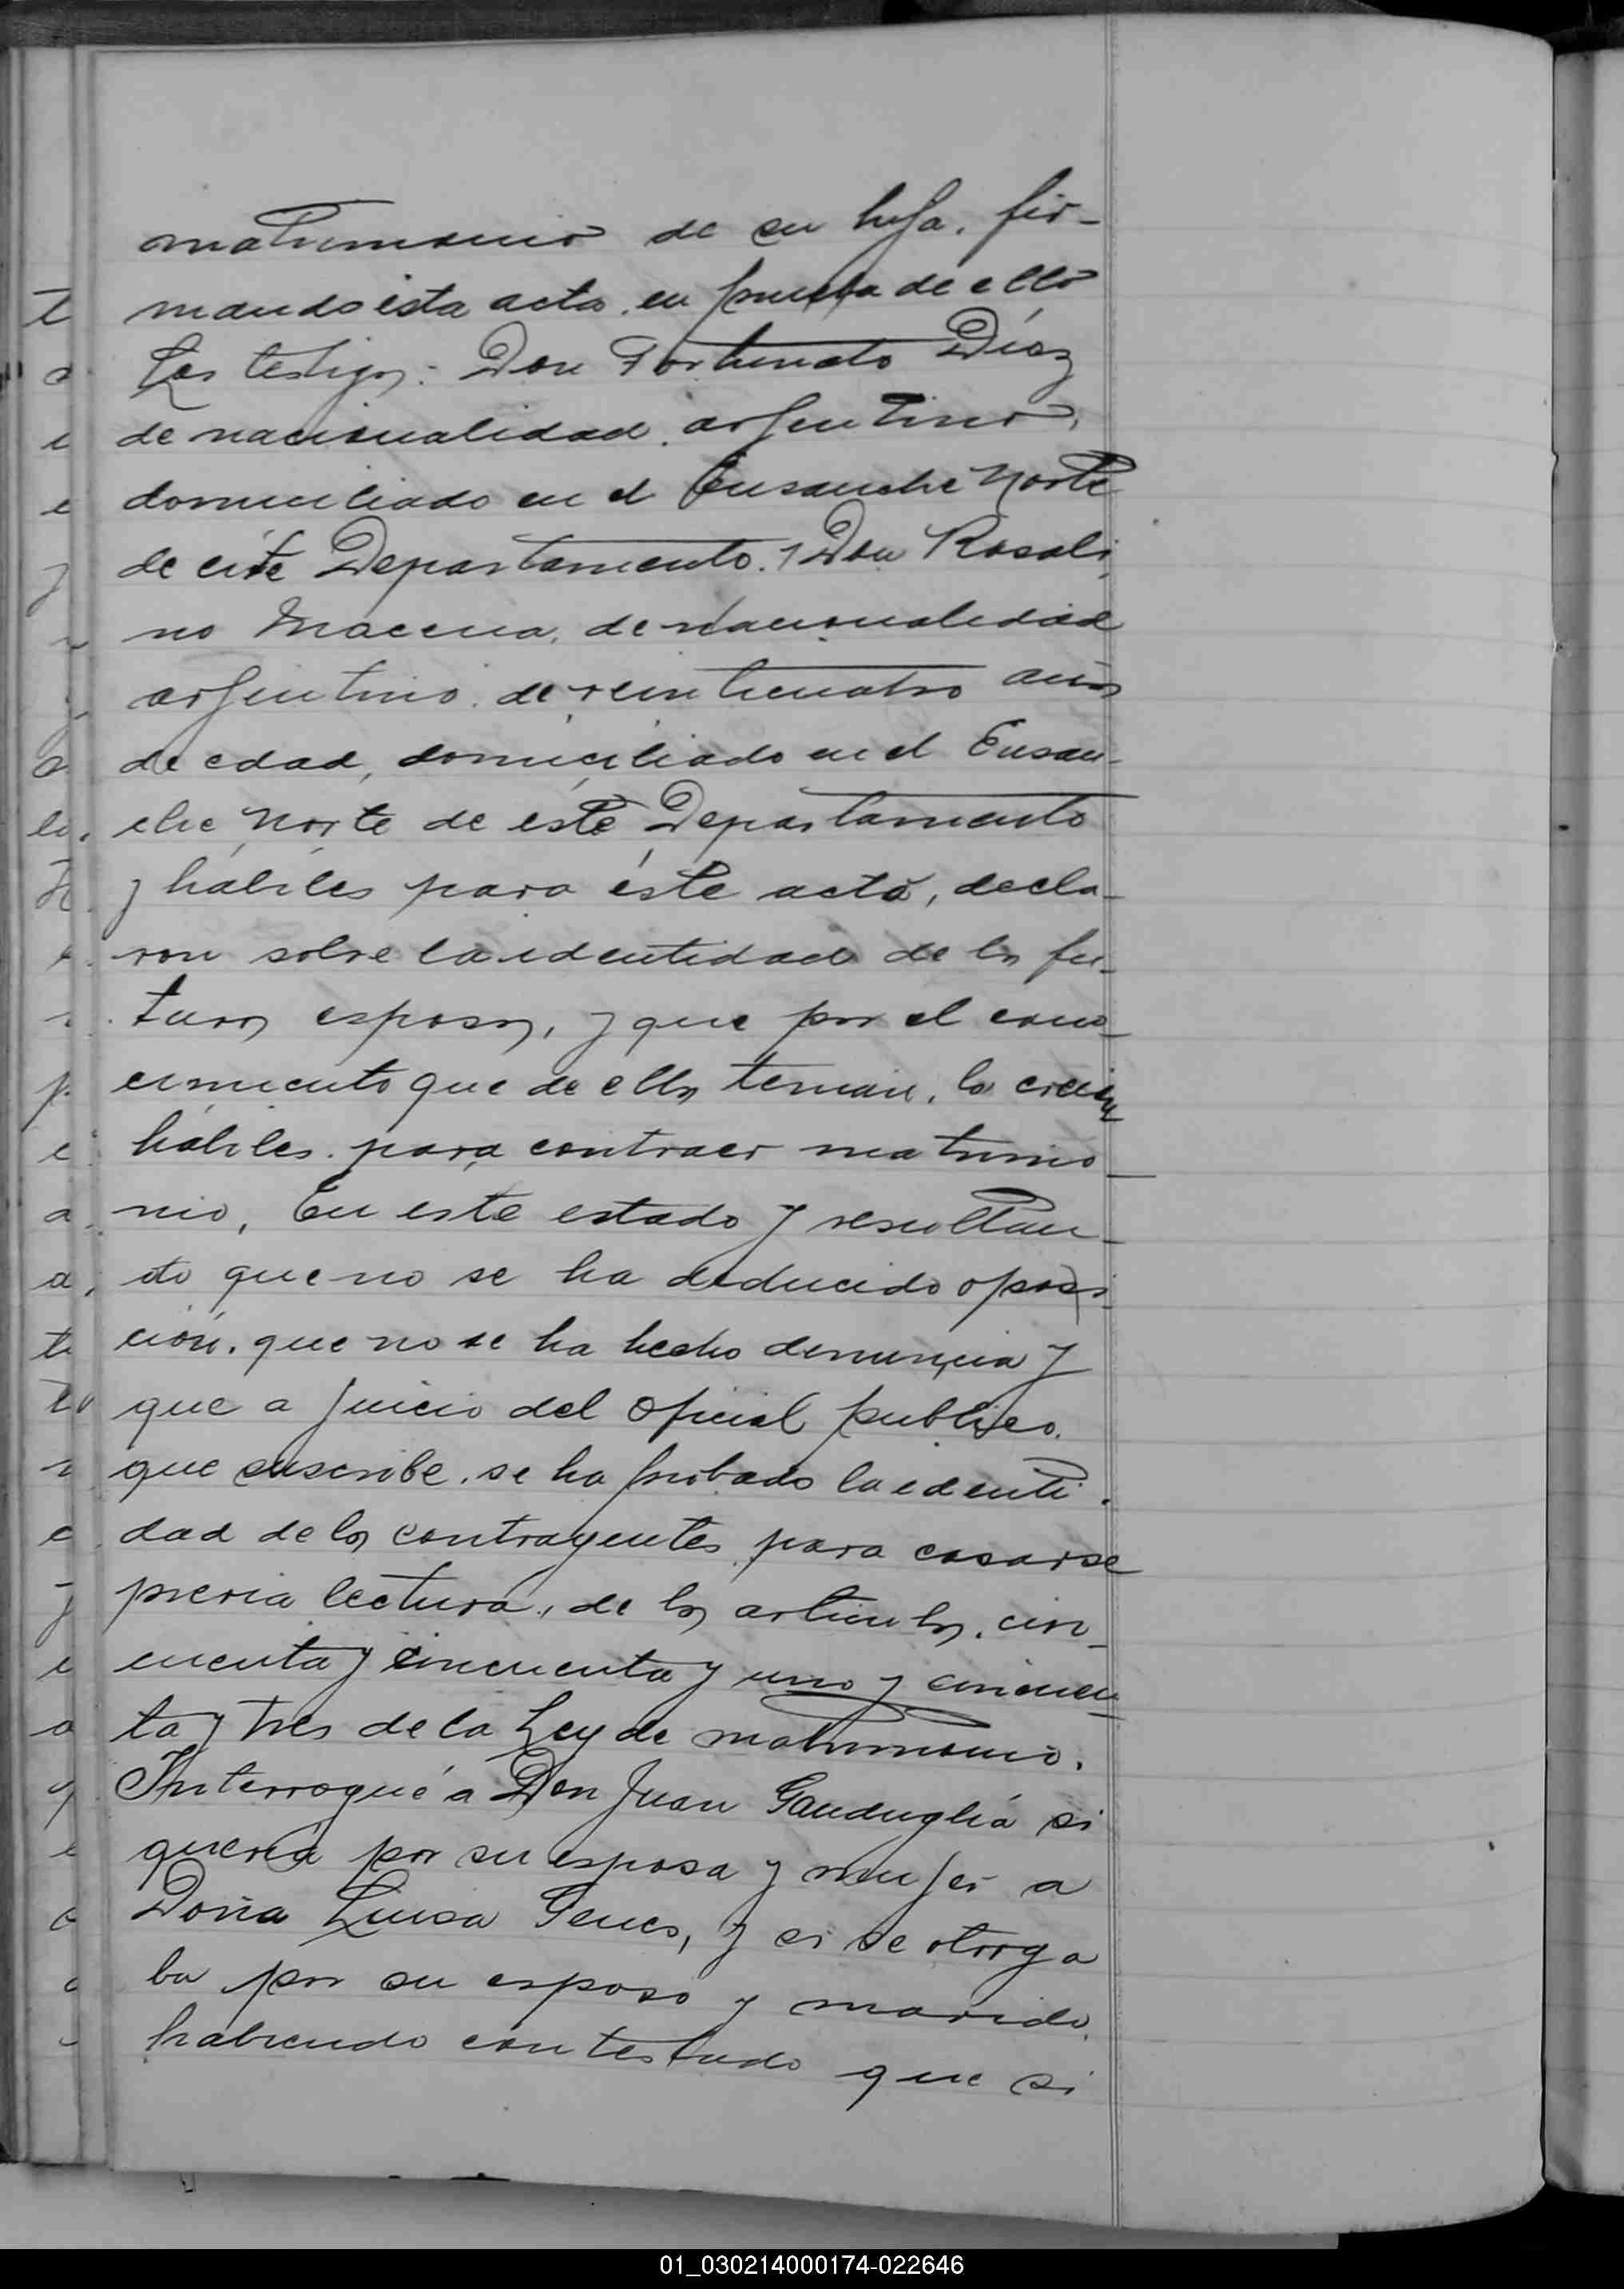 matrimonio de su hija, fir-
mando esta acta, en prueba de ello
Los testigos: Don Fortunato Díaz
de nacionalidad, argentino,
domiciliado en el Ensanche Norte
de este Departamento. y Don Rosali
no de nacionalidad
argentino, de veinticuatro años
de edad, domiciliado en el Ensan-
che Norte de éste Departamento
y hábiles para éste acto, decla-
ron sobre la identidad de los fu-
turos esposos, y que por el cono-
cimiento que de ellos tenian, los creian
hábiles para contraer matrimo-
nio, En este estado y resultan-
do que no se ha deducido oposi-
ción, que no se ha hecho denuncia y
que a juicio del oficial publico.
que suscribe, se ha probado la identi-
dad de los contrayentes para casarse
previa lectura, de los articulos, cin-
cuenta y cincuenta y uno y cincuen-
ta y tres de la Ley de matrimonio.
Interrogué a Don Juan Gauduglia si
quería por su esposa y mujer a
Doña Luisa y si se otorga
ba por su esposo y marido,
habiendo contestado que si
01_030214000174-022646